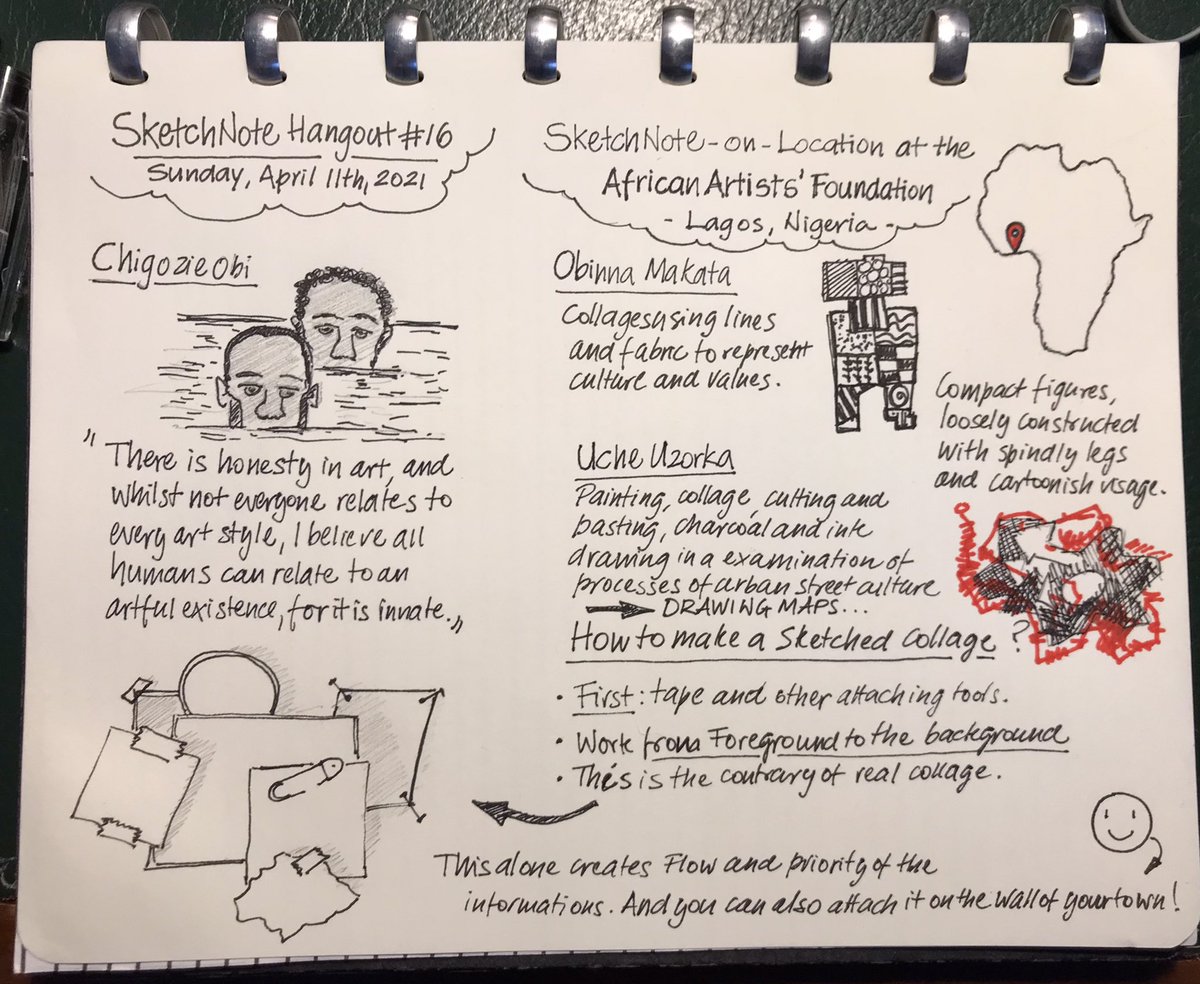 SketchNote Hangout #16
Sunday, April 11th, 2021
Chigozie Obi
"There is honesty in art, and
whilst not everyone relates to
every art style, I believe all
humans can relate to an
artful existence, for it is innate."
SketchNote-on-Location at the
African Artists' Foundation
- Lagos, Nigeria -
Obinna Makata
Collages using lines
and fabric to represent
culture and values.
Compact figures,
loosely constructed
with spindly legs
and cartoonish visage.
Uche Uzorka
Painting, collage, cutting and
basting, charcoal and ink
drawing in a examination of
processes of urban street culture
DRAWING MAPS...
How to make a Sketched Collage?
• First: tape and other attaching tools.
• Work from Foreground to the background
• This is the contrary of real collage.
This alone creates Flow and priority of the
informations. And you can also attach it on the wall of your town!